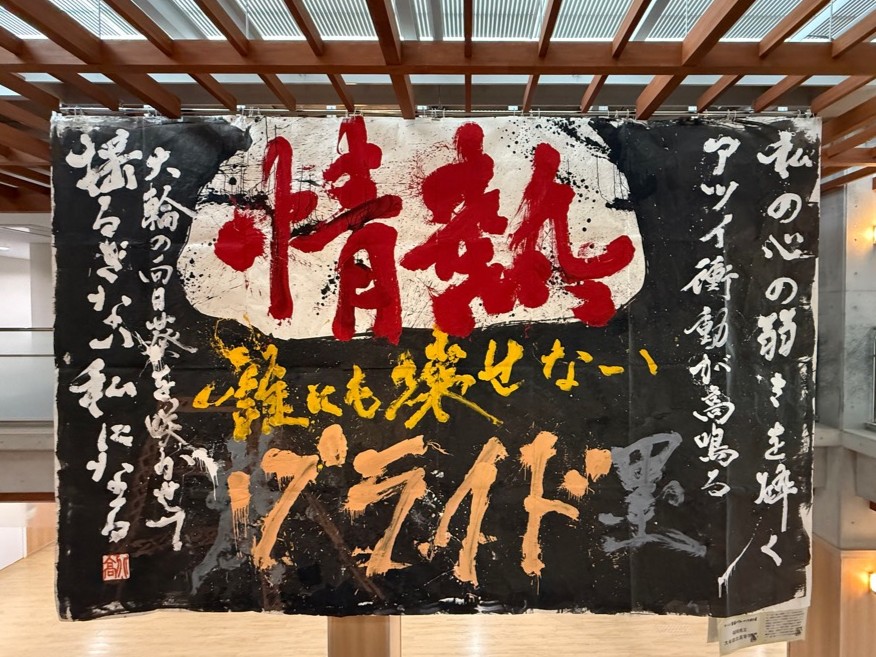 私の心の弱さを砕く
アツイ衝動が高鳴る
情熱
誰にも壊せない
プライド
墨
大輪の向日葵を咲かせて
揺るぎない私になる